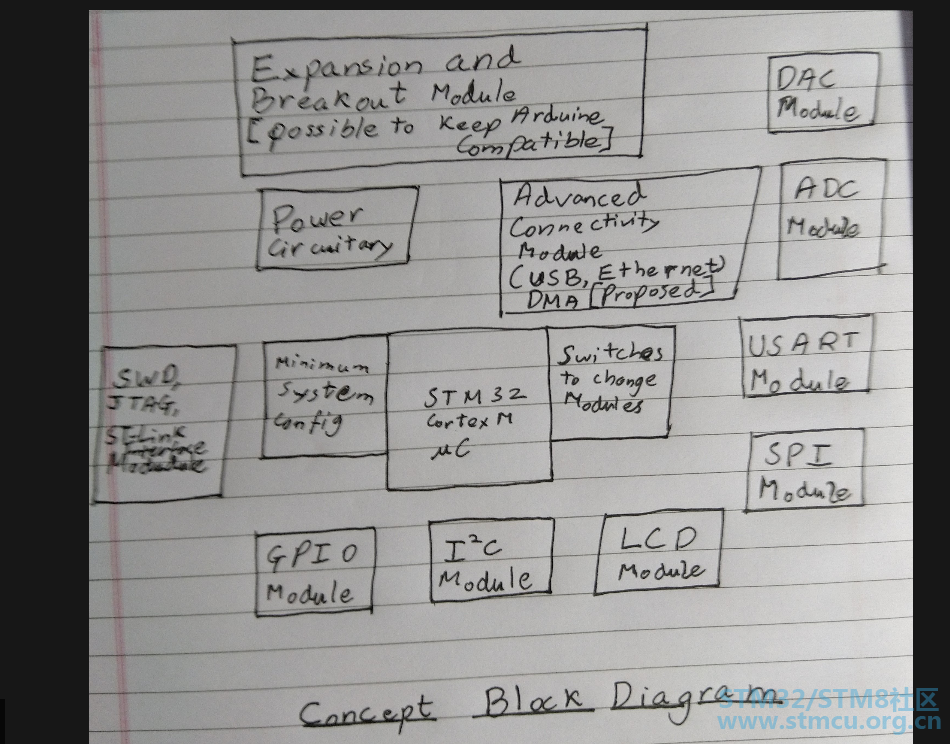 Expansion and
Breakout Module
[possible to Keep Arduino
Compatible]
DAC
Module
Power
Circuitary
Advanced
Connectivity
Module
(USB, Ethernet)
DMA [Proposed]
ADC
Module
SWD,
JTAG,
ST-Link
Interface
Module
Minimum
System
Config
STM32
Cortex M
μC
Switches
to change
Modules
USART
Module
SPI
Module
GPIO
Module
I²C
Module
LCD
Module
Concept Block Diagram
STM32/STM8社区
www.stmcu.org.cn